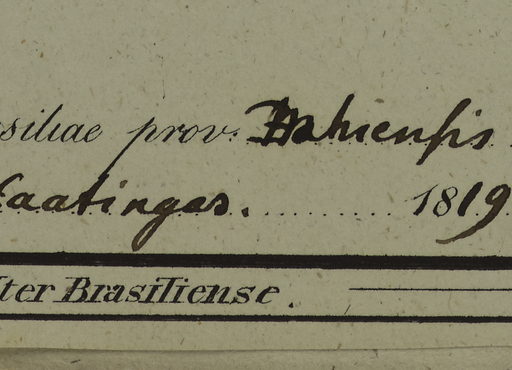 siliae prov. Bahiensis
Caatingas. 1819
Iter Brasiliense.